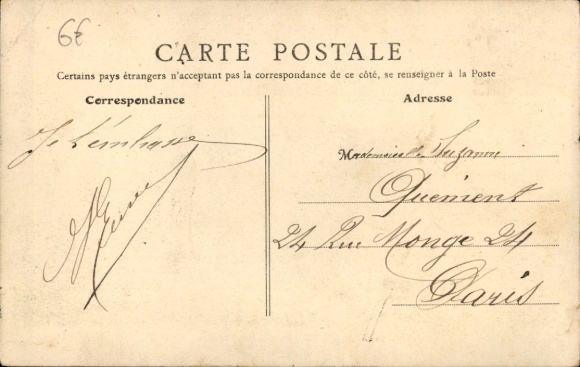 6€
CARTE POSTALE
Certains pays étrangers n'acceptant pas la correspondance de ce côté, se renseigner à la Poste
Correspondance
Adresse
Je t'embrasse
Mademoiselle Suzanne
Quément
24 Rue Monge 24
Paris